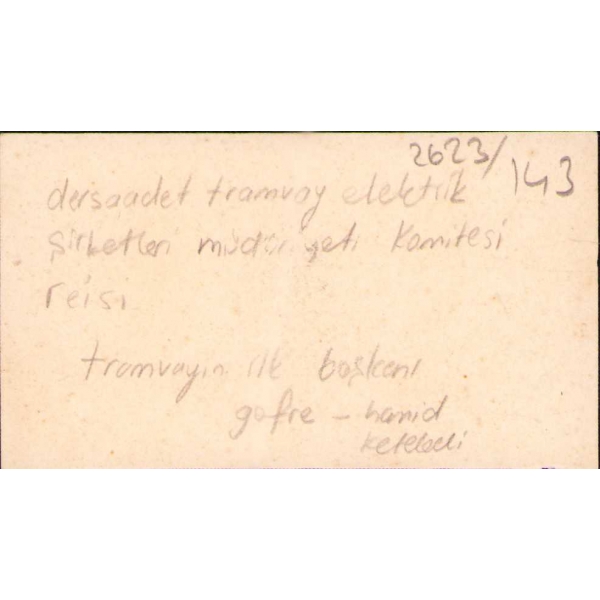 2623/143
dersaadet tramvay elektrik
şirketleri müdüriyeti komitesi
reisi
tramvayın ilk başkanı
gofre - hamid